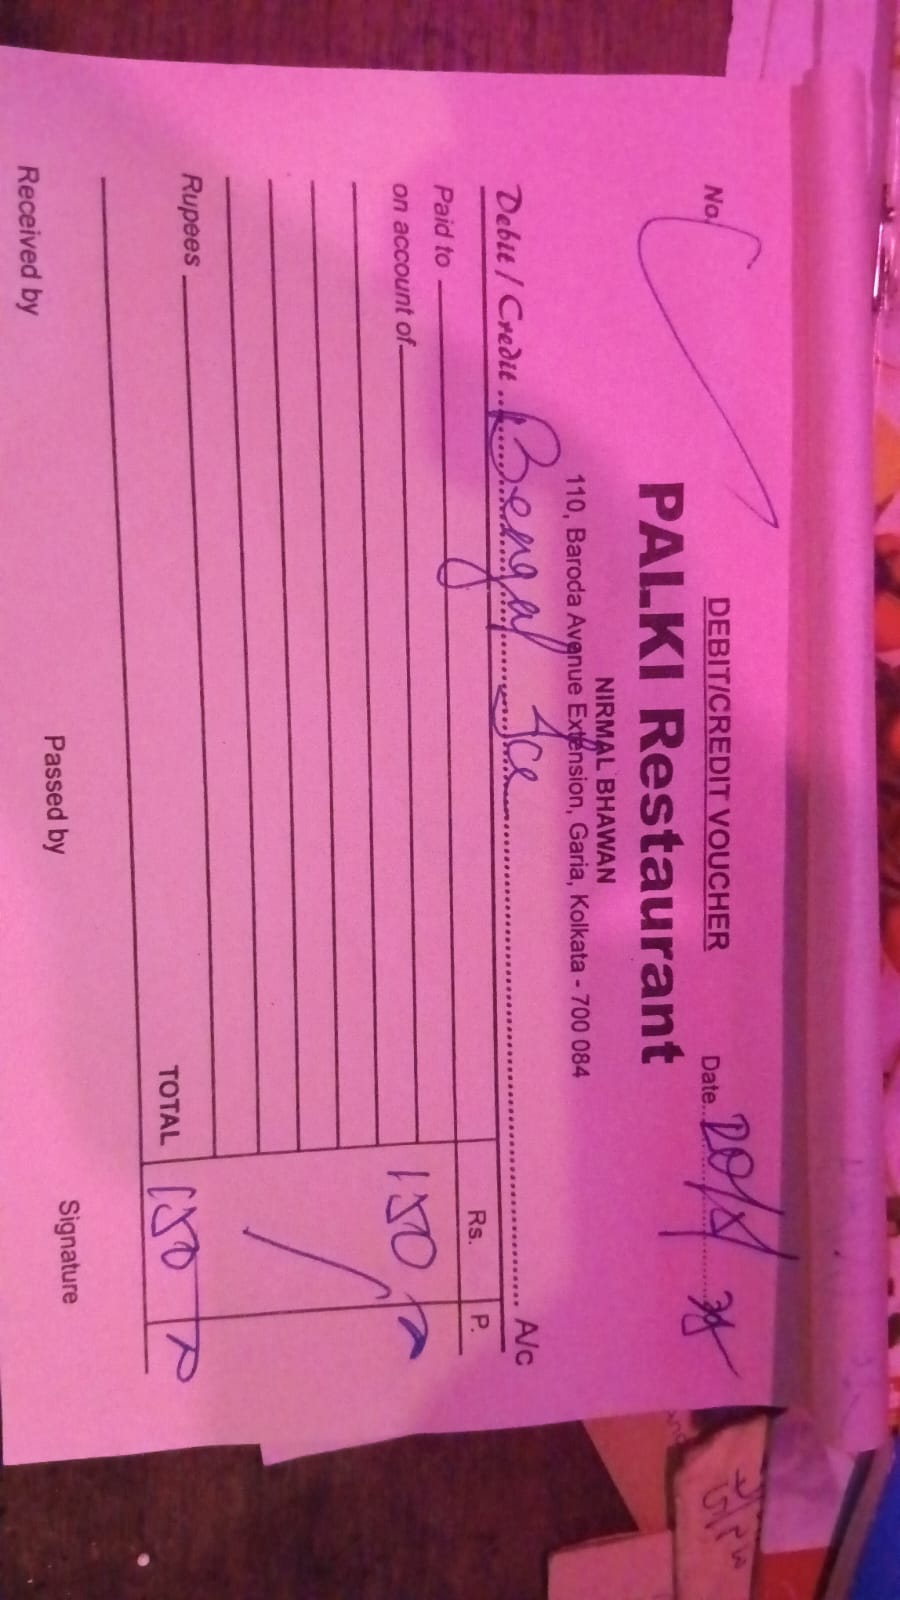 DEBIT/CREDIT VOUCHER
No. Date 20/5/
PALKI Restaurant
NIRMAL BHAWAN
110, Baroda Avenue Extension, Garia, Kolkata - 700 084
Debit / Credit Bengal Ice A/c
Paid to Rs. P.
on account of 150
Rupees TOTAL 150
Received by Passed by Signature